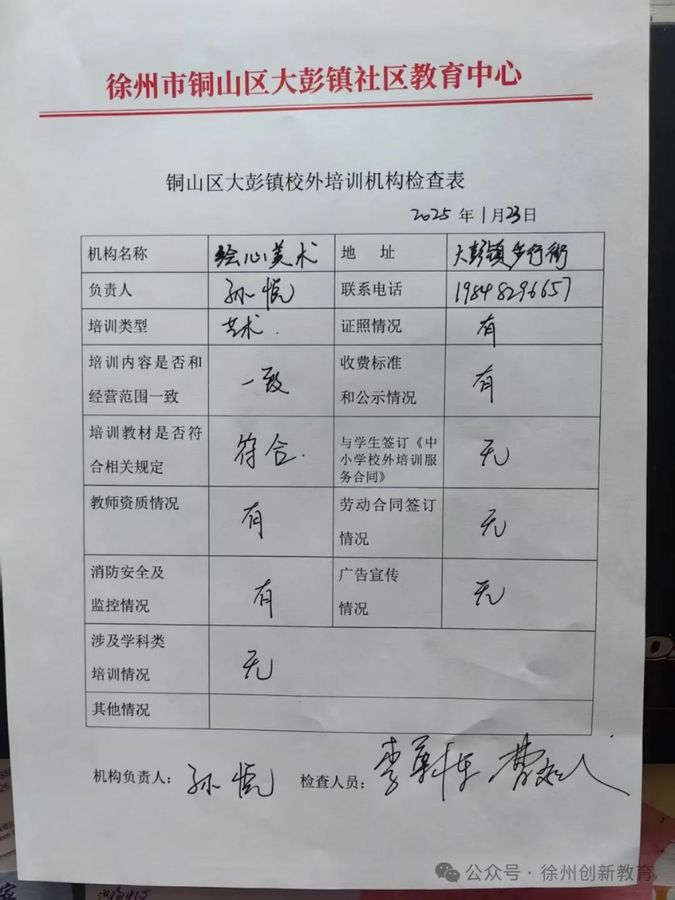 徐州市铜山区大彭镇社区教育中心
铜山区大彭镇校外培训机构检查表
2025 年 1 月 23 日
机构名称 绘心美术 地 址 大彭镇步行街
负责人 孙悦 联系电话 19848296657
培训类型 艺术. 证照情况 有
培训内容是否和
经营范围一致 一致 收费标准
和公示情况 有
培训教材是否符
合相关规定 符合. 与学生签订《中
小学校外培训服
务合同》 无
教师资质情况 有 劳动合同签订
情况 无
消防安全及
监控情况 有 广告宣传
情况 无
涉及学科类
培训情况 无
其他情况
机构负责人： 孙悦 检查人员：
公众号 · 徐州创新教育